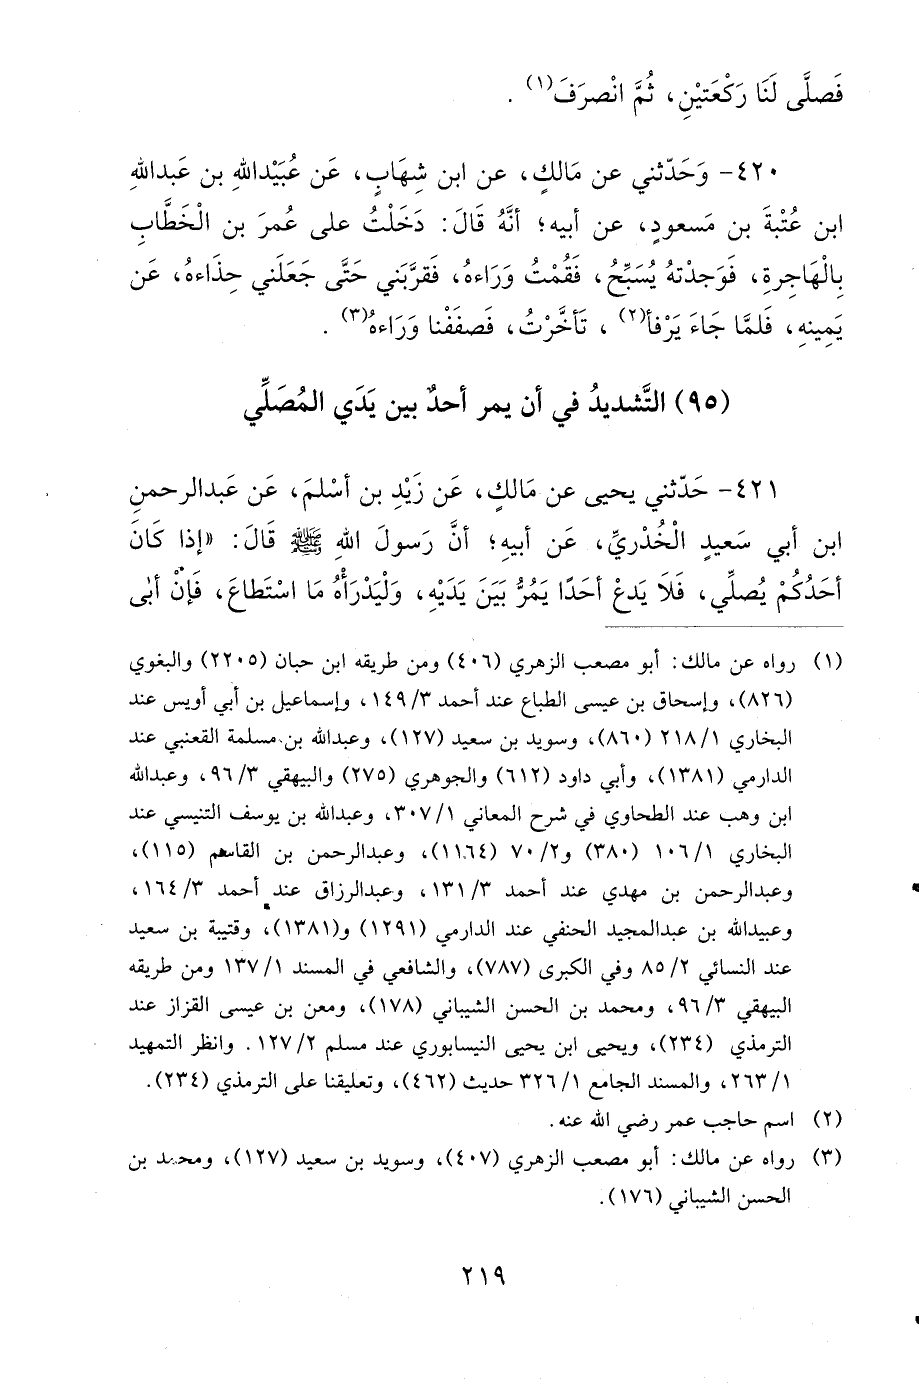 فَصلَّى لَنَا رَكْعَتيْنِ، ثُمَّ انْصرَفَ(١) .
٤٢٠- وَحَدّثني عن مَالكٍ، عن ابن شِهَابٍ، عَن عُبَيْداللهِ بن عَبداللهِ
ابن عُتْبةَ بن مَسعودٍ، عن أبيه؛ أنَّهُ قَالَ: دَخَلْتُ على عُمرَ بن الْخَطَّابِ
بِالْهَاجِرةِ، فَوَجدْتهُ يُسَبِّحُ، فَقُمْتُ وَرَاءهُ، فَقرَّبَني حَتَّى جَعَلَني حِذَاءهُ، عَن
يَمِينهِ، فَلمَّا جَاءَ يَرْفأ(٢) ، تَأخَّرْتُ، فَصفَفْنا وَرَاءهُ(٣) .
(٩٥) التَّشديدُ في أن يمر أحدٌ بين يَدَي المُصَلِّي
٤٢١- حَدّثني يحيى عن مَالكٍ، عَن زَيْدِ بن أسْلمَ، عَن عَبدالرحمنِ
ابن أبي سَعيدٍ الْخُدْريِّ، عَن أبيهِ؛ أنَّ رَسولَ اللهِ ﷺ قَالَ: «إذا كَانَ
أحَدُكُمْ يُصلِّي، فَلاَ يَدعْ أحَدًا يَمُرُّ بَيَنَ يَدَيْهِ، وَلْيَدْرَأْهُ مَا اسْتَطاعَ، فَإنْ أبٰى
(١) رواه عن مالك: أبو مصعب الزهري (٤٠٦) ومن طريقه ابن حبان (٢٢٠٥) والبغوي
(٨٢٦)، وإسحاق بن عيسى الطباع عند أحمد ٣/ ١٤٩، وإسماعيل بن أبي أويس عند
البخاري ١/ ٢١٨ (٨٦٠)، وسويد بن سعيد (١٢٧)، وعبدالله بن مسلمة القعنبي عند
الدارمي (١٣٨١)، وأبي داود (٦١٢) والجوهري (٢٧٥) والبيهقي ٣/ ٩٦، وعبدالله
ابن وهب عند الطحاوي في شرح المعاني ١/ ٣٠٧، وعبدالله بن يوسف التنيسي عند
البخاري ١/ ١٠٦ (٣٨٠) و٢/ ٧٠ (١١٦٤)، وعبدالرحمن بن القاسم (١١٥)،
وعبدالرحمن بن مهدي عند أحمد ٣/ ١٣١، وعبدالرزاق عند أحمد ٣/ ١٦٤،
وعبيدالله بن عبدالمجيد الحنفي عند الدارمي (١٢٩١) و(١٣٨١)، وقتيبة بن سعيد
عند النسائي ٢/ ٨٥ وفي الكبرى (٧٨٧)، والشافعي في المسند ١/ ١٣٧ ومن طريقه
البيهقي ٣/ ٩٦، ومحمد بن الحسن الشيباني (١٧٨)، ومعن بن عيسى القزاز عند
الترمذي (٢٣٤)، ويحيى ابن يحيى النيسابوري عند مسلم ٢/ ١٢٧. وانظر التمهيد
١/ ٢٦٣، والمسند الجامع ١/ ٣٢٦ حديث (٤٦٢)، وتعليقنا على الترمذي (٢٣٤).
(٢) اسم حاجب عمر رضي الله عنه.
(٣) رواه عن مالك: أبو مصعب الزهري (٤٠٧)، وسويد بن سعيد (١٢٧)، ومحمد بن
الحسن الشيباني (١٧٦).
٢١٩